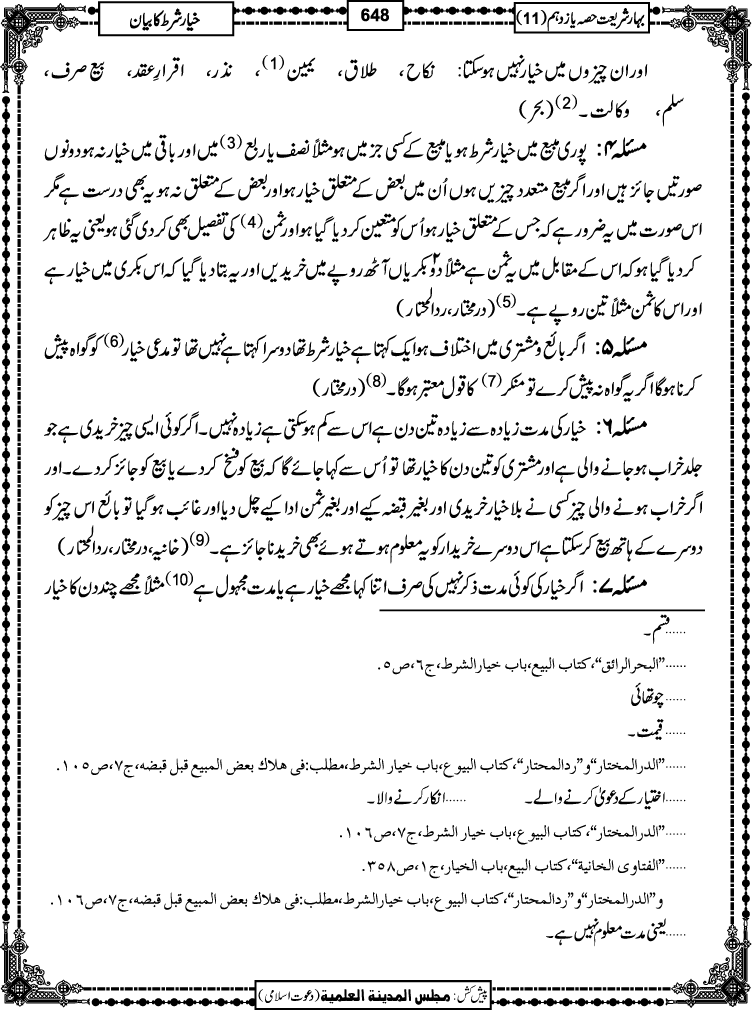 بہارِ شریعت حصہ یازدہم (11)
648
خیار شرط کا بیان
اور ان چیزوں میں خیار نہیں ہوسکتا: نکاح، طلاق، یمین(1)، نذر، اقرارِ عقد، بیع صرف،
سلم، وکالت۔(2) (بحر)
مسئلہ ۴: پوری مبیع میں خیار شرط ہو یا مبیع کے کسی جز میں ہو مثلاً نصف یا ربع(3) میں اور باقی میں خیار نہ ہو دونوں
صورتیں جائز ہیں اور اگر مبیع متعدد چیزیں ہوں اُن میں بعض کے متعلق خیار ہو اور بعض کے متعلق نہ ہو یہ بھی درست ہے مگر
اس صورت میں یہ ضرور ہے کہ جس کے متعلق خیار ہو اُس کو متعین کر دیا گیا ہو اور ثمن(4) کی تفصیل بھی کر دی گئی ہو یعنی یہ ظاہر
کر دیا گیا ہو کہ اس کے مقابل میں یہ ثمن ہے مثلاً دو۲ بکریاں آٹھ روپے میں خریدیں اور یہ بتا دیا گیا کہ اس بکری میں خیار ہے
اور اس کا ثمن مثلاً تین روپے ہے۔(5) (درمختار، ردالمحتار)
مسئلہ ۵: اگر بائع و مشتری میں اختلاف ہو ایک کہتا ہے خیار شرط تھا دوسرا کہتا ہے نہیں تھا تو مدعی خیار(6) کو گواہ پیش
کرنا ہوگا اگر یہ گواہ نہ پیش کرے تو منکر(7) کا قول معتبر ہوگا۔(8) (درمختار)
مسئلہ ۶: خیار کی مدت زیادہ سے زیادہ تین دن ہے اس سے کم ہوسکتی ہے زیادہ نہیں۔ اگر کوئی ایسی چیز خریدی ہے جو
جلد خراب ہو جانے والی ہے اور مشتری کو تین دن کا خیار تھا تو اُس سے کہا جائے گا کہ بیع کو فسخ کر دے یا بیع کو جائز کر دے۔ اور
اگر خراب ہونے والی چیز کسی نے بلا خیار خریدی اور بغیر قبضہ کیے اور بغیر ثمن ادا کیے چل دیا اور غائب ہو گیا تو بائع اس چیز کو
دوسرے کے ہاتھ بیع کر سکتا ہے اس دوسرے خریدار کو یہ معلوم ہوتے ہوئے بھی خریدنا جائز ہے۔(9) (خانیہ، درمختار، ردالمحتار)
مسئلہ ۷: اگر خیار کی کوئی مدت ذکر نہیں کی صرف اتنا کہا مجھے خیار ہے یا مدت مجہول ہے(10) مثلاً مجھے چند دن کا خیار
......قسم۔
......"البحرالرائق"، کتاب البیع، باب خیارالشرط، ج٦، ص٥.
......چوتھائی
......قیمت۔
......"الدرالمختار" و"ردالمحتار"، کتاب البیوع، باب خیار الشرط، مطلب: فی ھلاك بعض المبیع قبل قبضہ، ج٧، ص١٠٥.
......اختیار کے دعویٰ کرنے والے۔ ......انکار کرنے والا۔
......"الدرالمختار"، کتاب البیوع، باب خیار الشرط، ج٧، ص١٠٦.
......"الفتاوی الخانیة"، کتاب البیع، باب الخیار، ج١، ص٣٥٨.
و"الدرالمختار" و"ردالمحتار"، کتاب البیوع، باب خیارالشرط، مطلب: فی ھلاك بعض المبیع قبل قبضہ، ج٧، ص١٠٦.
......یعنی مدت معلوم نہیں ہے۔
پیش کش: مجلس المدینة العلمیة (دعوت اسلامی)